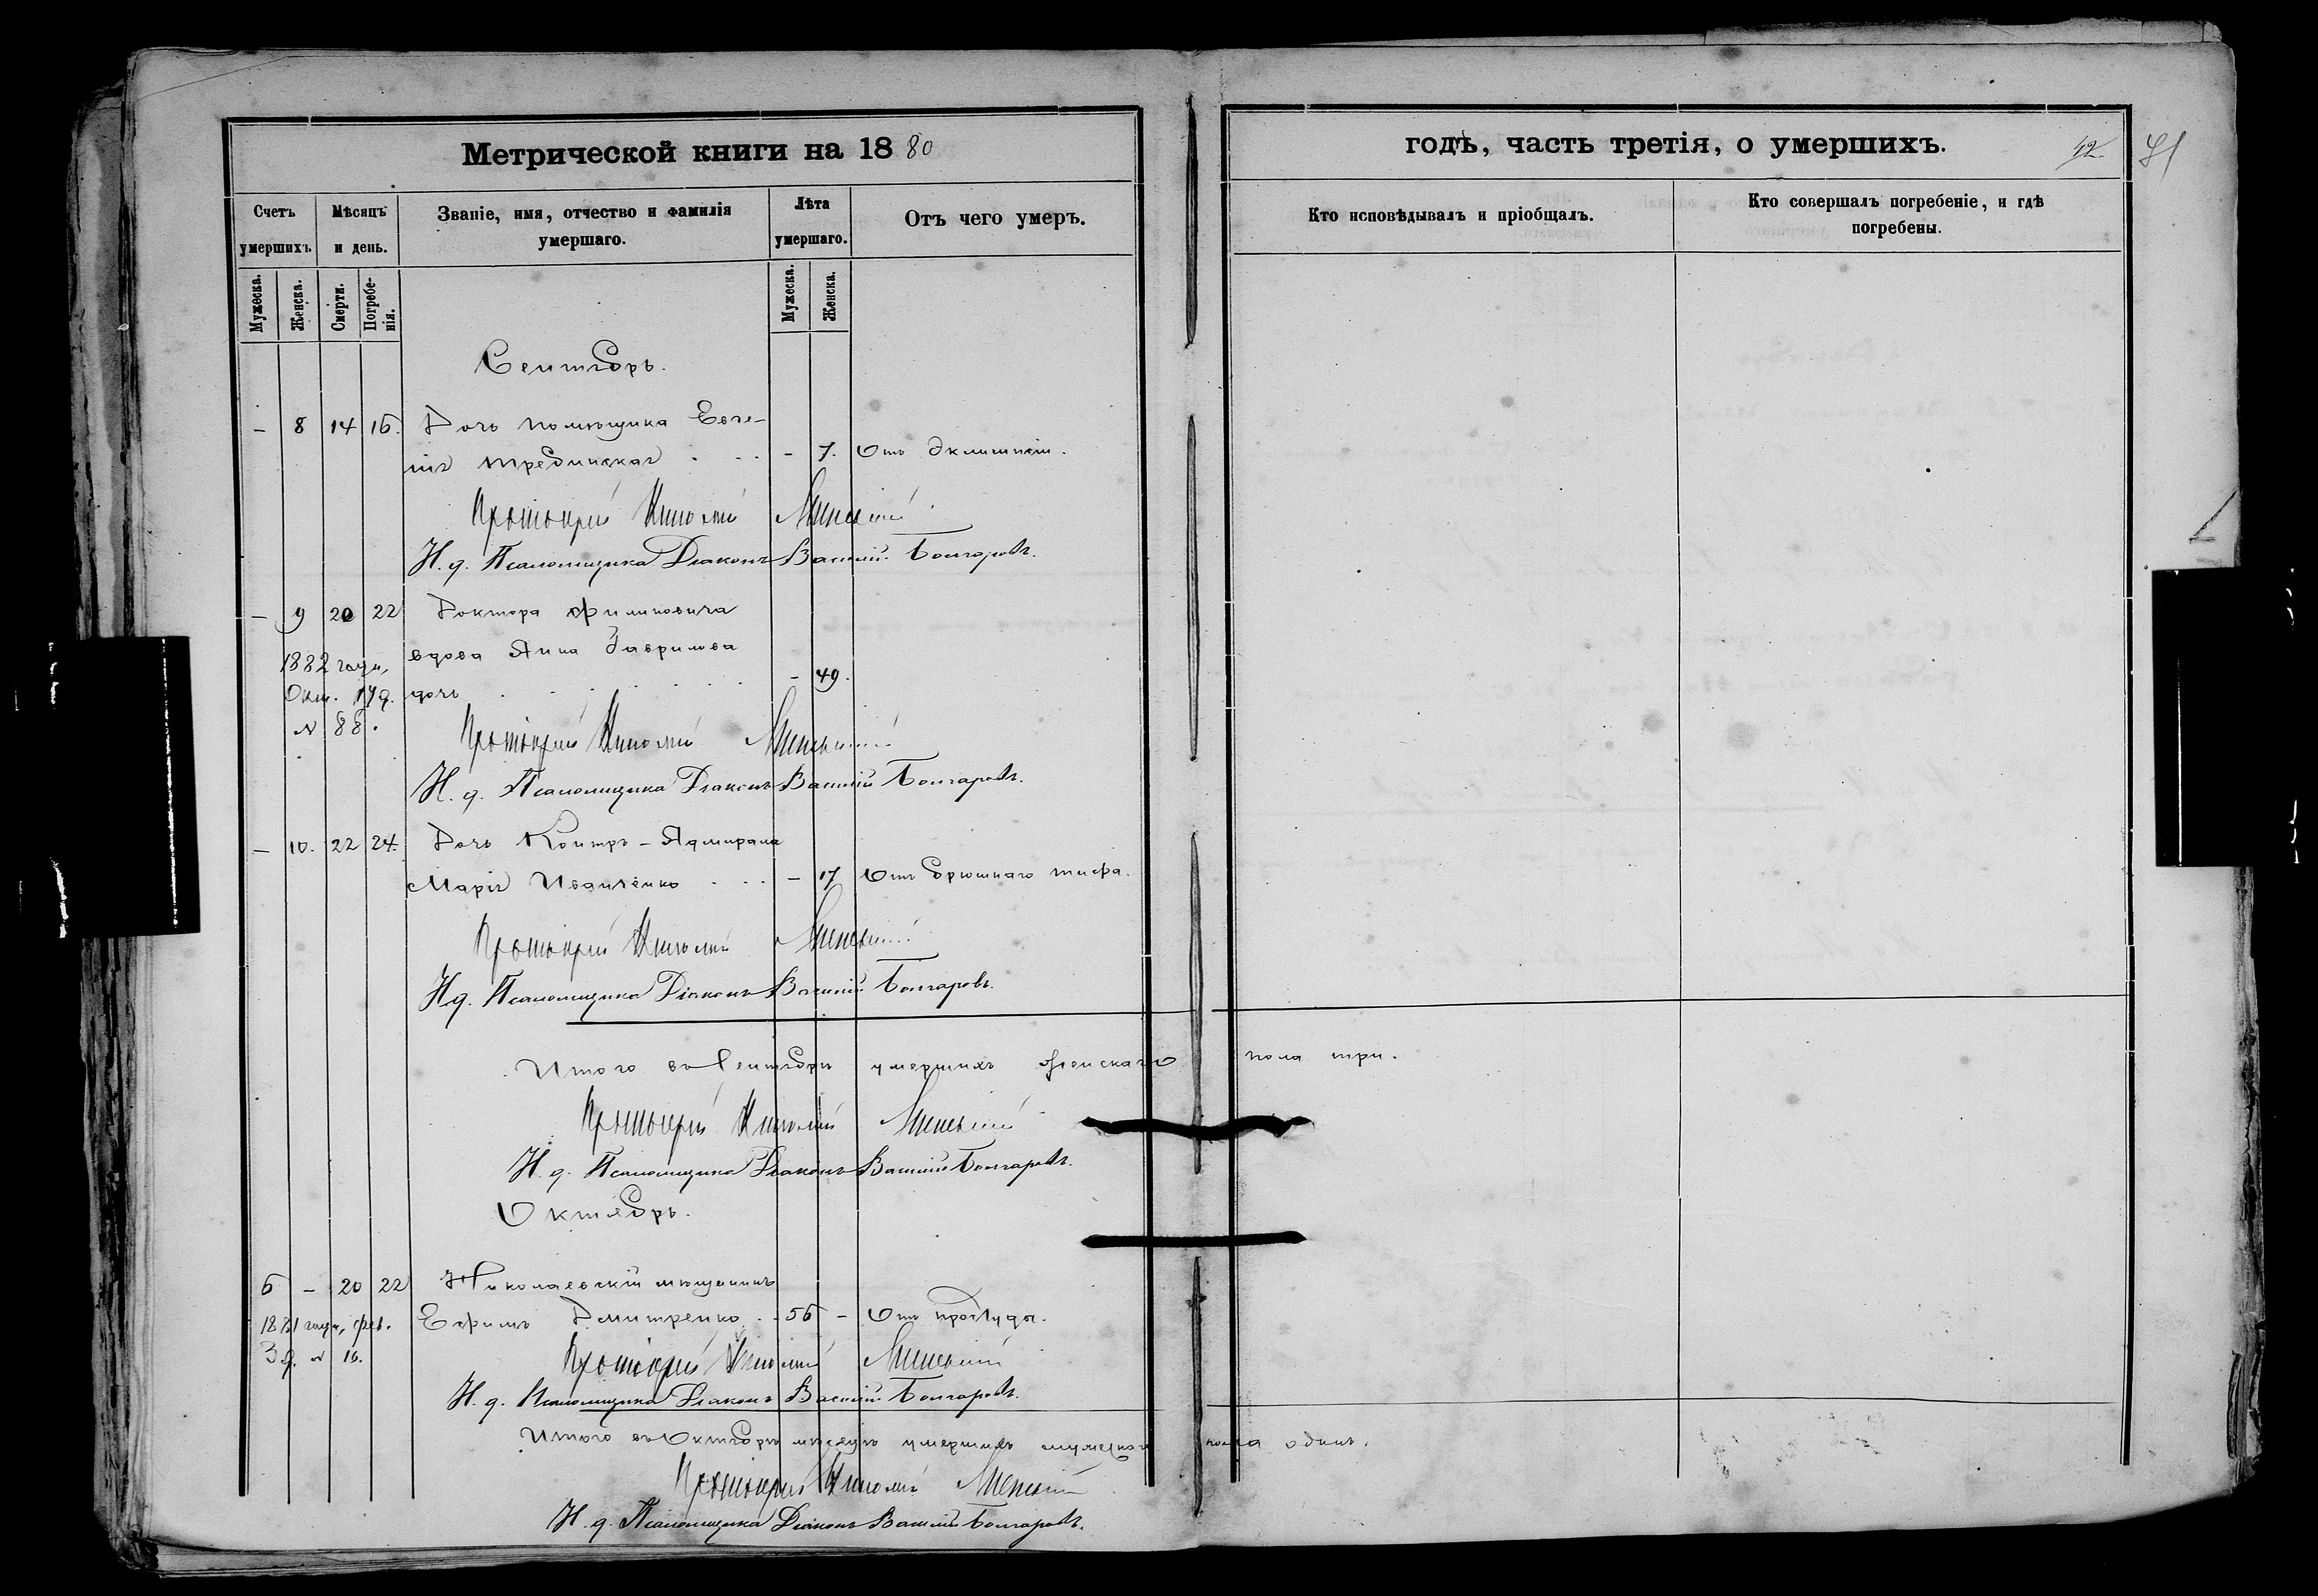 Метрической книги на 1880
годѣ, часть третія, о умершихъ.
42
41
Счетъ умершихъ.
Мѣсяцъ и день.
Званіе, имя, отчество и фамилія умершаго.
Лѣта умершаго.
Отъ чего умеръ.
Кто исповѣдывалъ и пріобщалъ.
Кто совершалъ погребеніе, и гдѣ погребены.
Мужеска.
Женска.
Смерти.
Погребенія.
Мужеска.
Женска.
Сентябрь.
– 8 14 16. Дочь помѣщика Евге-
нія – 7. Отъ эклампсіи.
Протоіерей Николай
И. д. Псаломщика Діаконъ Василій Болгаровъ.
– 9 20 22 Доктора Филиповича
вдова Анна Гаврилова
дочь – 49.
1882 года,
Окт. 17 д.
№ 88.
Протоіерей Николай
И. д. Псаломщика Діаконъ Василій Болгаровъ.
– 10. 22 24. Дочь Контръ-Адмирала
Марія Иванченко – 17 Отъ брюшнаго тифа.
Протоіерей Николай
И. д. Псаломщика Діаконъ Василій Болгаровъ.
Итого въ Сентябрѣ умершихъ женскаго пола три.
Протоіерей Николай
И. д. Псаломщика Діаконъ Василій Болгаровъ.
Октябрь.
6 – 20 22 Николаевскій мѣщанинъ
Ефимъ Дмитренко 56 – Отъ простуды.
1881 года, фев.
3 д. № 16.
Протоіерей Николай
И. д. Псаломщика Діаконъ Василій Болгаровъ.
Итого въ Октябрѣ мѣсяцѣ умершихъ мужескаго пола одинъ.
Протоіерей Николай
И. д. Псаломщика Діаконъ Василій Болгаровъ.